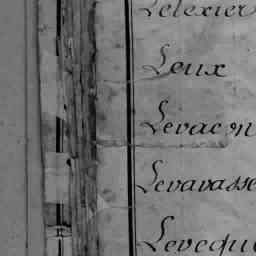 Letexier
Leux
Levacon
Levavasse
Levequ